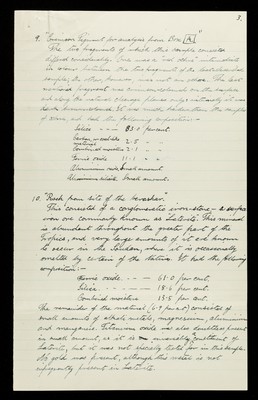 3.
9. "Crimson Pigment for analysis from Box [A]"
The two fragments of which this sample consisted
differed considerably. One was a "red ochre" intermediate
in colour between the two fragments of the last described
sample; the other, however, was not an ochre. The last
mentioned fragment was
and along the natural
than
of and had the following composition:—
Silica - - - 83.0 per cent.
Combined moisture 2.1 " "
Ferric oxide - - 11.1 " "
Aluminium oxide, small amount
small amount.
10. "Rock from site of the "
This consisted of a conglomeratic ironstone - a
iron ore commonly known as "Laterite". This mineral
is abundant throughout the greater part of the
Tropics, and very large amounts of it are known
to occur in the Sudan, where it is occasionally
smelted by certain of the natives. It had the following
composition:—
Ferric oxide - - - 61.0 per cent.
Silica - - - - 18.6 per cent.
Combined moisture 13.5 per cent.
The remainder of the material (6.9 per cent) consisted of
small amounts of alkali metals, magnesium, aluminium
and manganese. Titanium oxide was also doubtless present
in small amount, as it is invariably a constituent of
Laterite, but it was not actually tested for in this sample.
No gold was present, although this metal is not
infrequently present in Laterite.